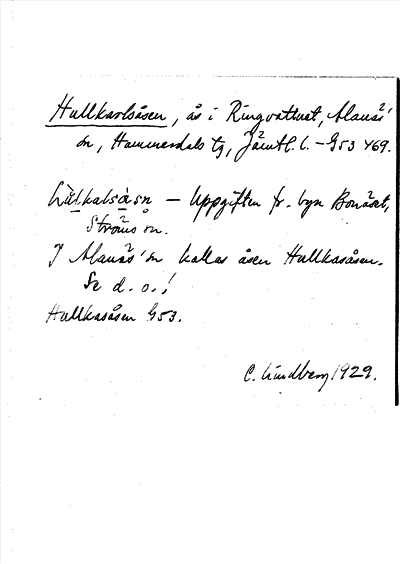 Hallkarlsåsen, ås i Ringvattnet, Alanäs'
sn, Hammerdals tg, Jämtl. l. - G53 469.
– Uppgiften fr. byn Bonäset,
Ströms sn.
I Alanäs' sn kallas åsen Hallkasåsen.
Se d. o.!
Hallkasåsen G53.
C. Lindberg 1929.